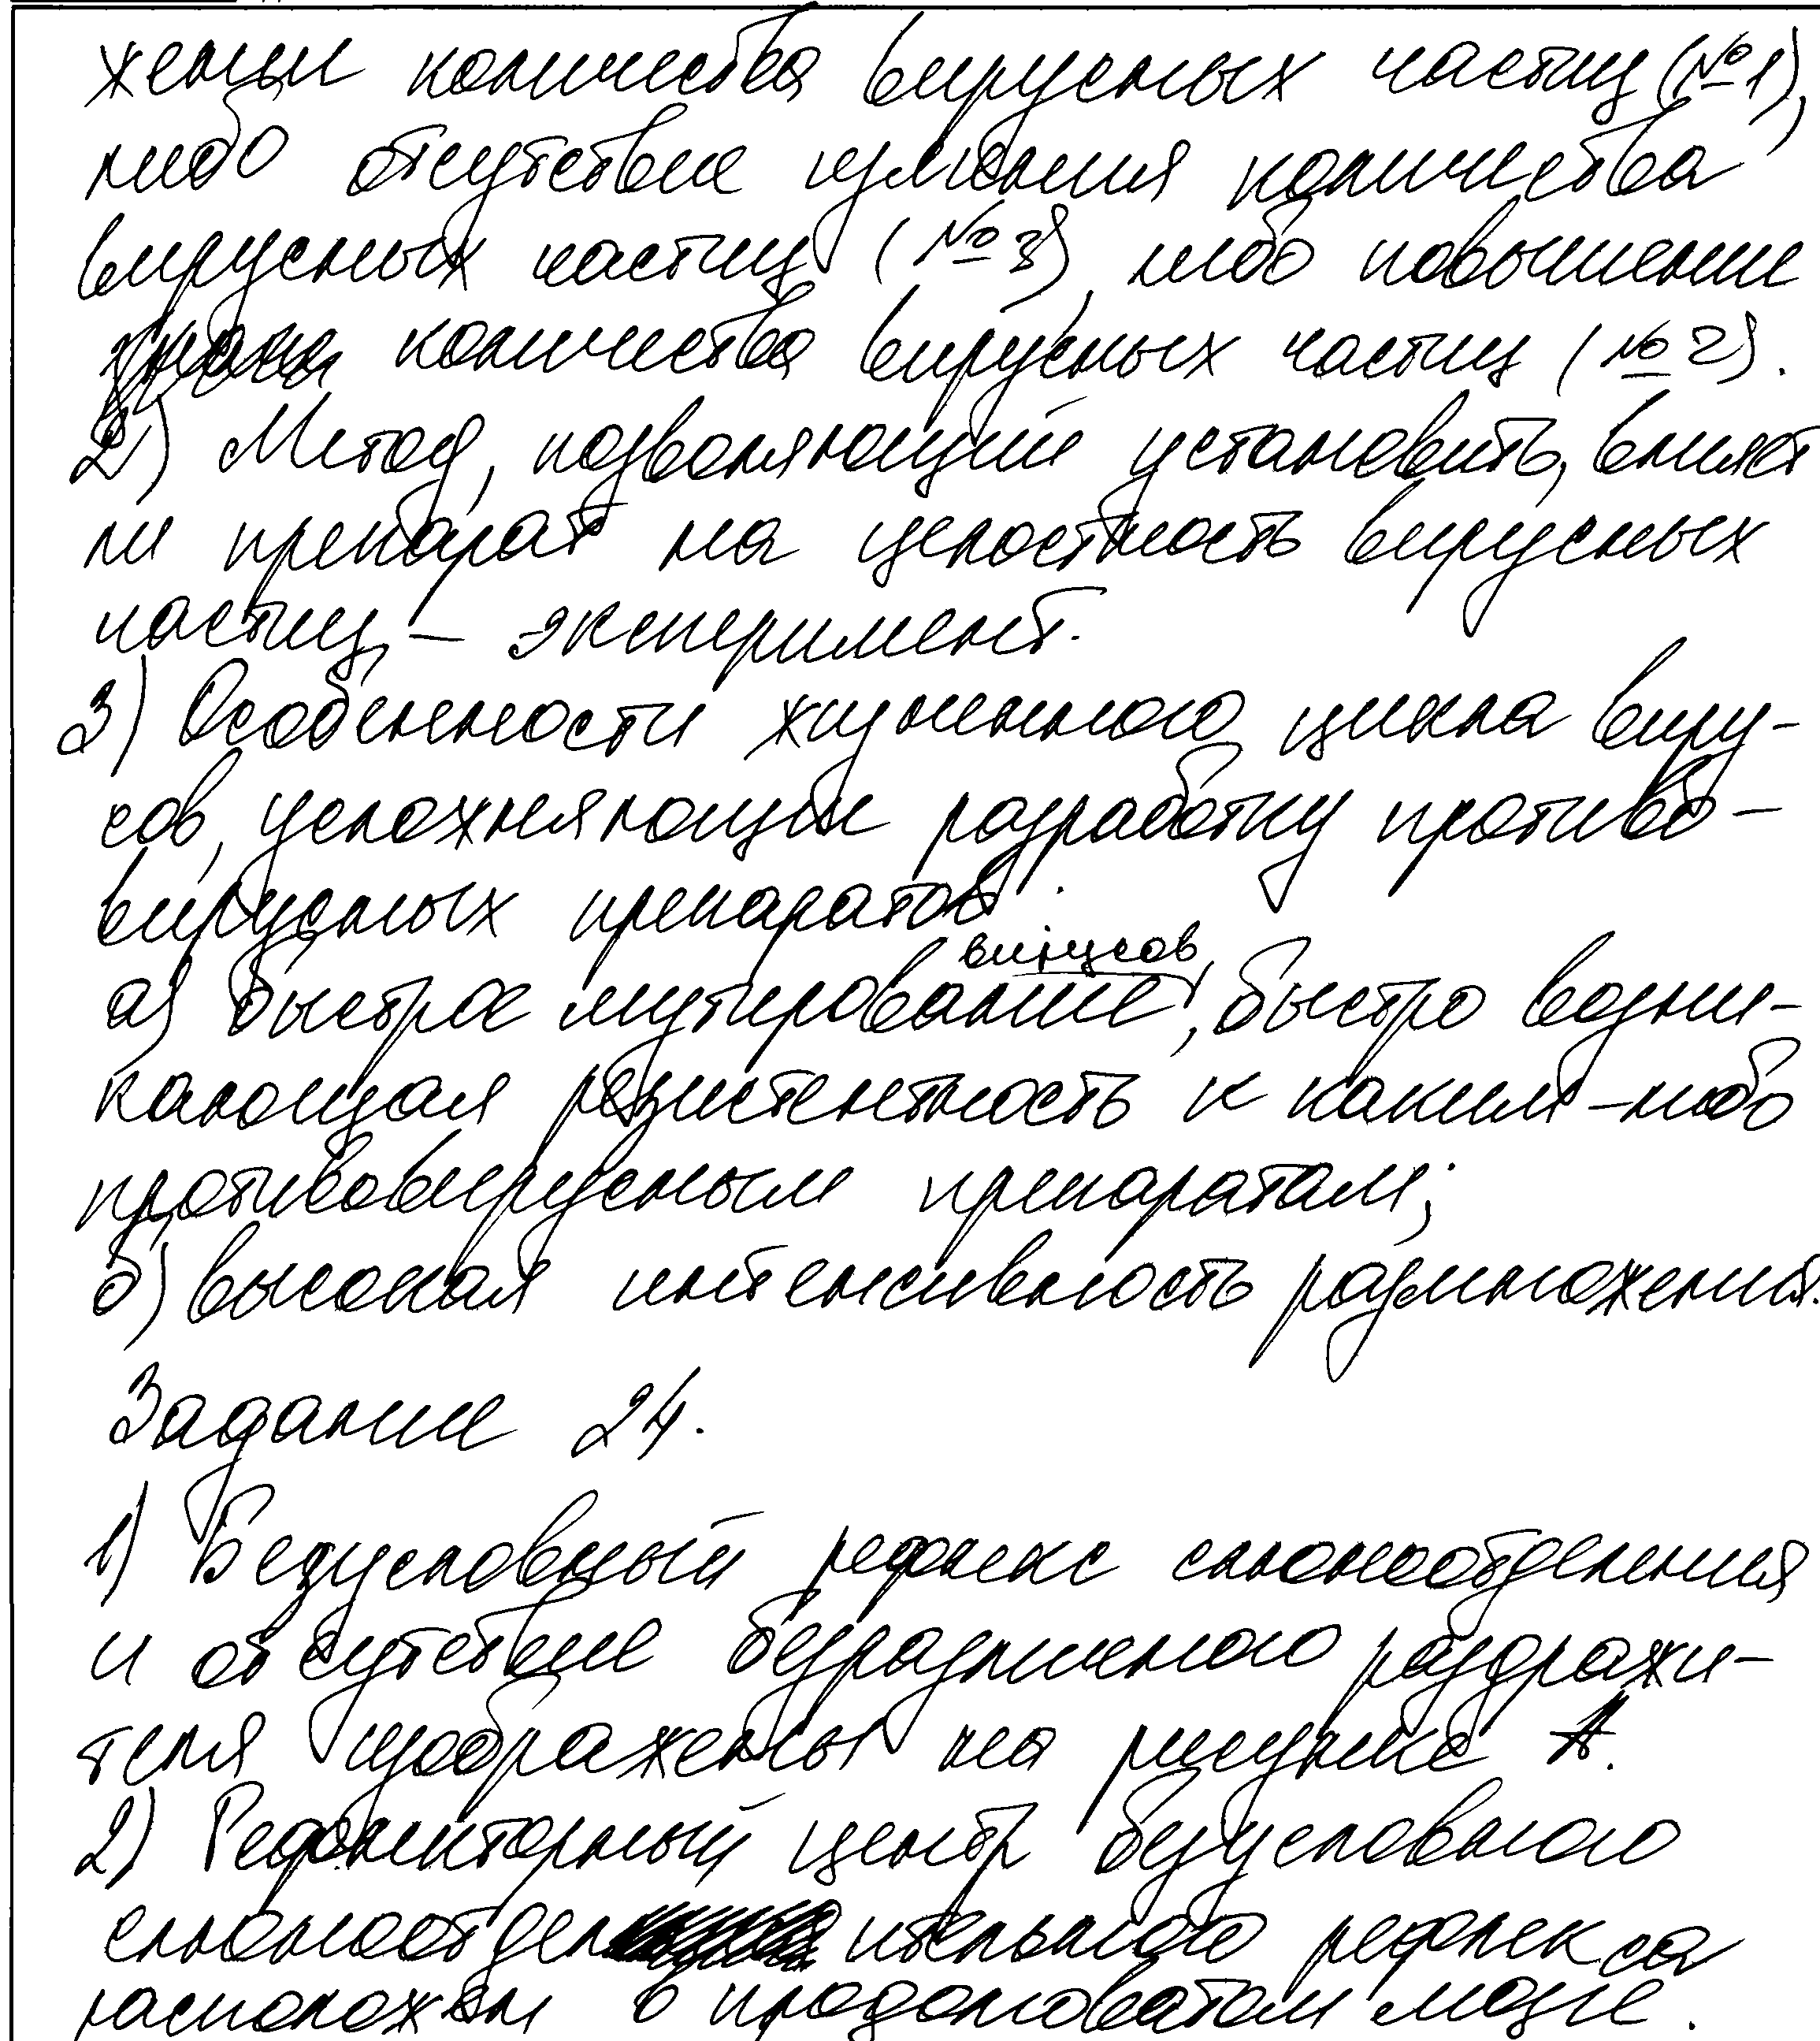 жении количества вирусных частиц (№1),
либо отсутствие изменения количества
вирусных частиц (№3), либо повышение
количества вирусных частиц (№2).
2) Метод, позволяющий установить, влияет
ли препарат на целостность вирусных
частиц, – эксперимент.
3) Особенности жизненного цикла виру-
сов, усложняющие разработку противо-
вирусных препаратов:
а) быстрое мутирование вирусов, быстро возни-
кающая резистентность к каким-либо
противовирусным препаратам;
б) высокая интенсивность размножения.
Задание 24.
1) Безусловный рефлекс слюноотделения
и отсутствие безразличного раздражи-
теля изображены на рисунке А.
2) Рефлекторный центр безусловного
слюноотделительного рефлекса
расположен в продолговатом мозге.